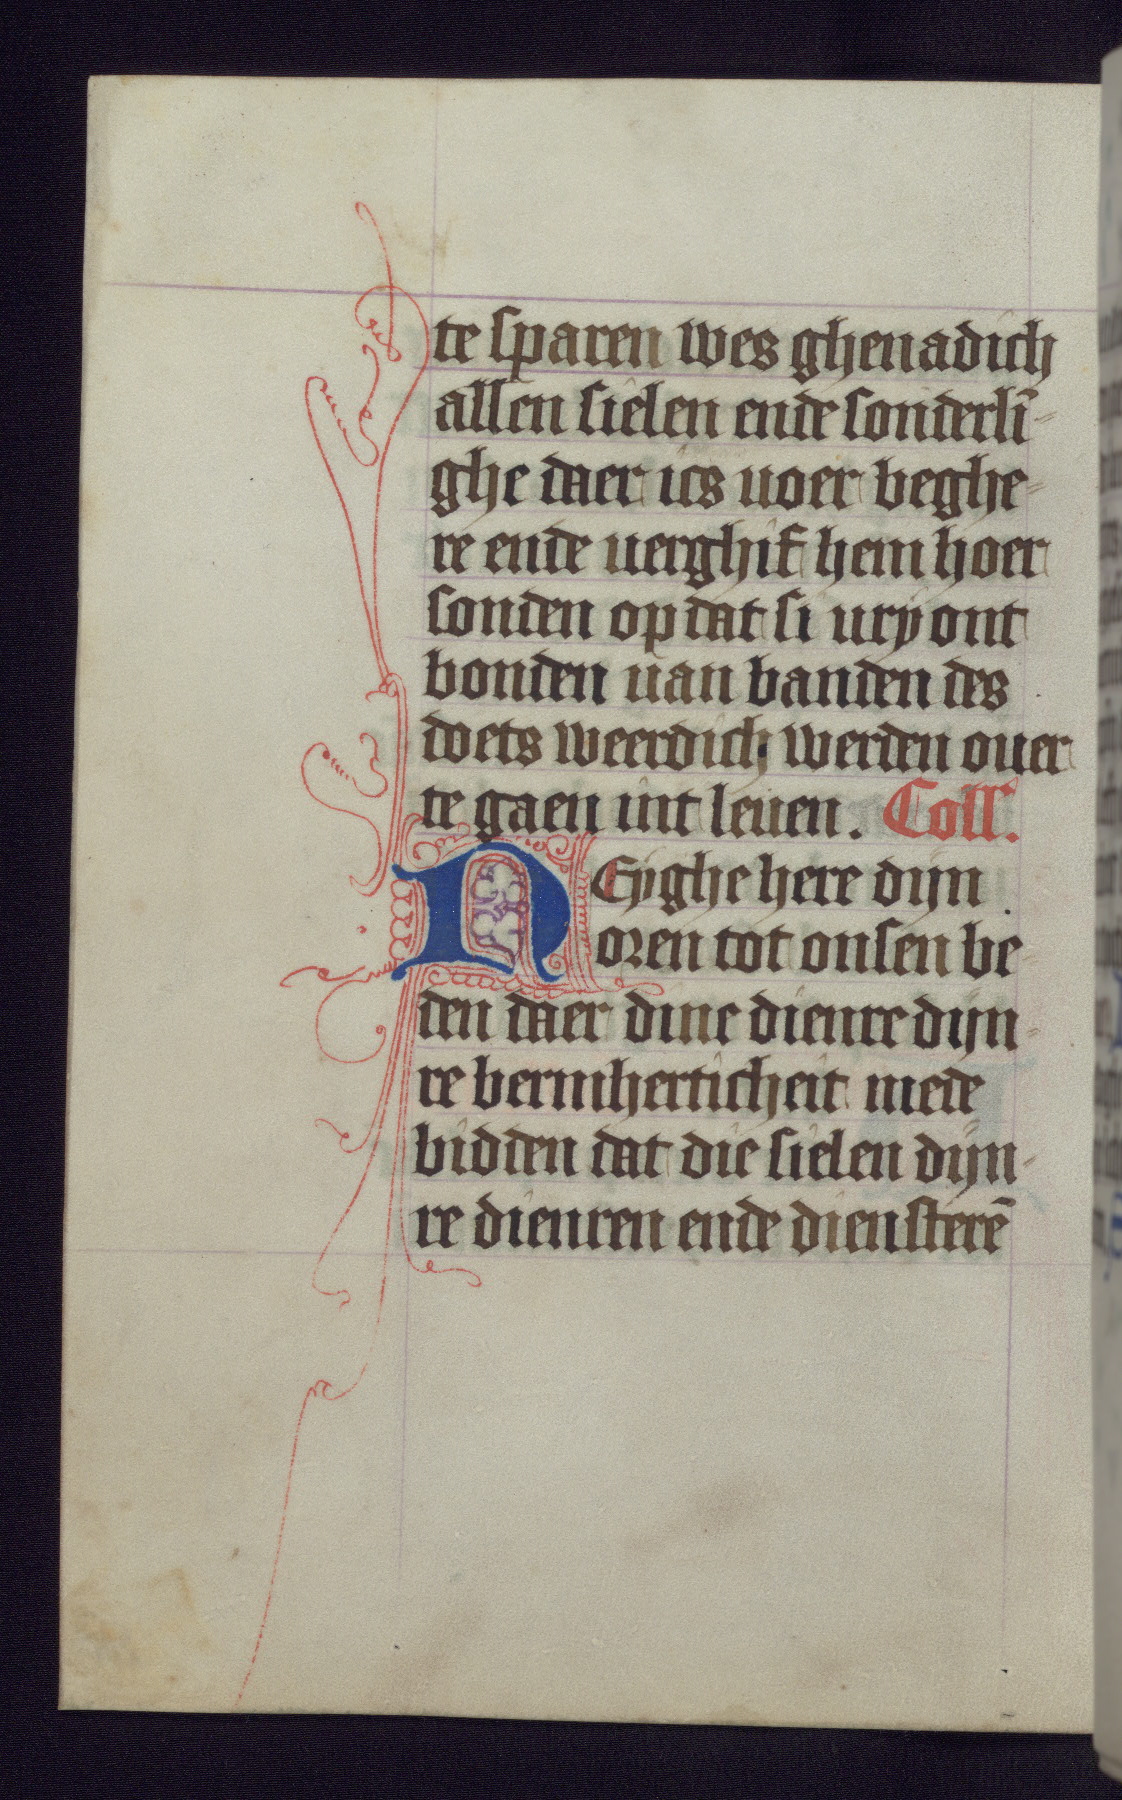 te sparen wes ghenadich
allen sielen ende sonderlī-
ghe daer ics uoer beghe-
re ende uerghif hem hoer
sonden op dat si urÿ ont
bonden uan banden des
doets weerdich werden ouer
te gaen int leuen. Coll'.
NEÿghe here dijn
oren tot onsen be
den daer dine dienre dijn-
re bermherticheit mede
bidden dat die sielen dijn-
re dienren ende diensterē